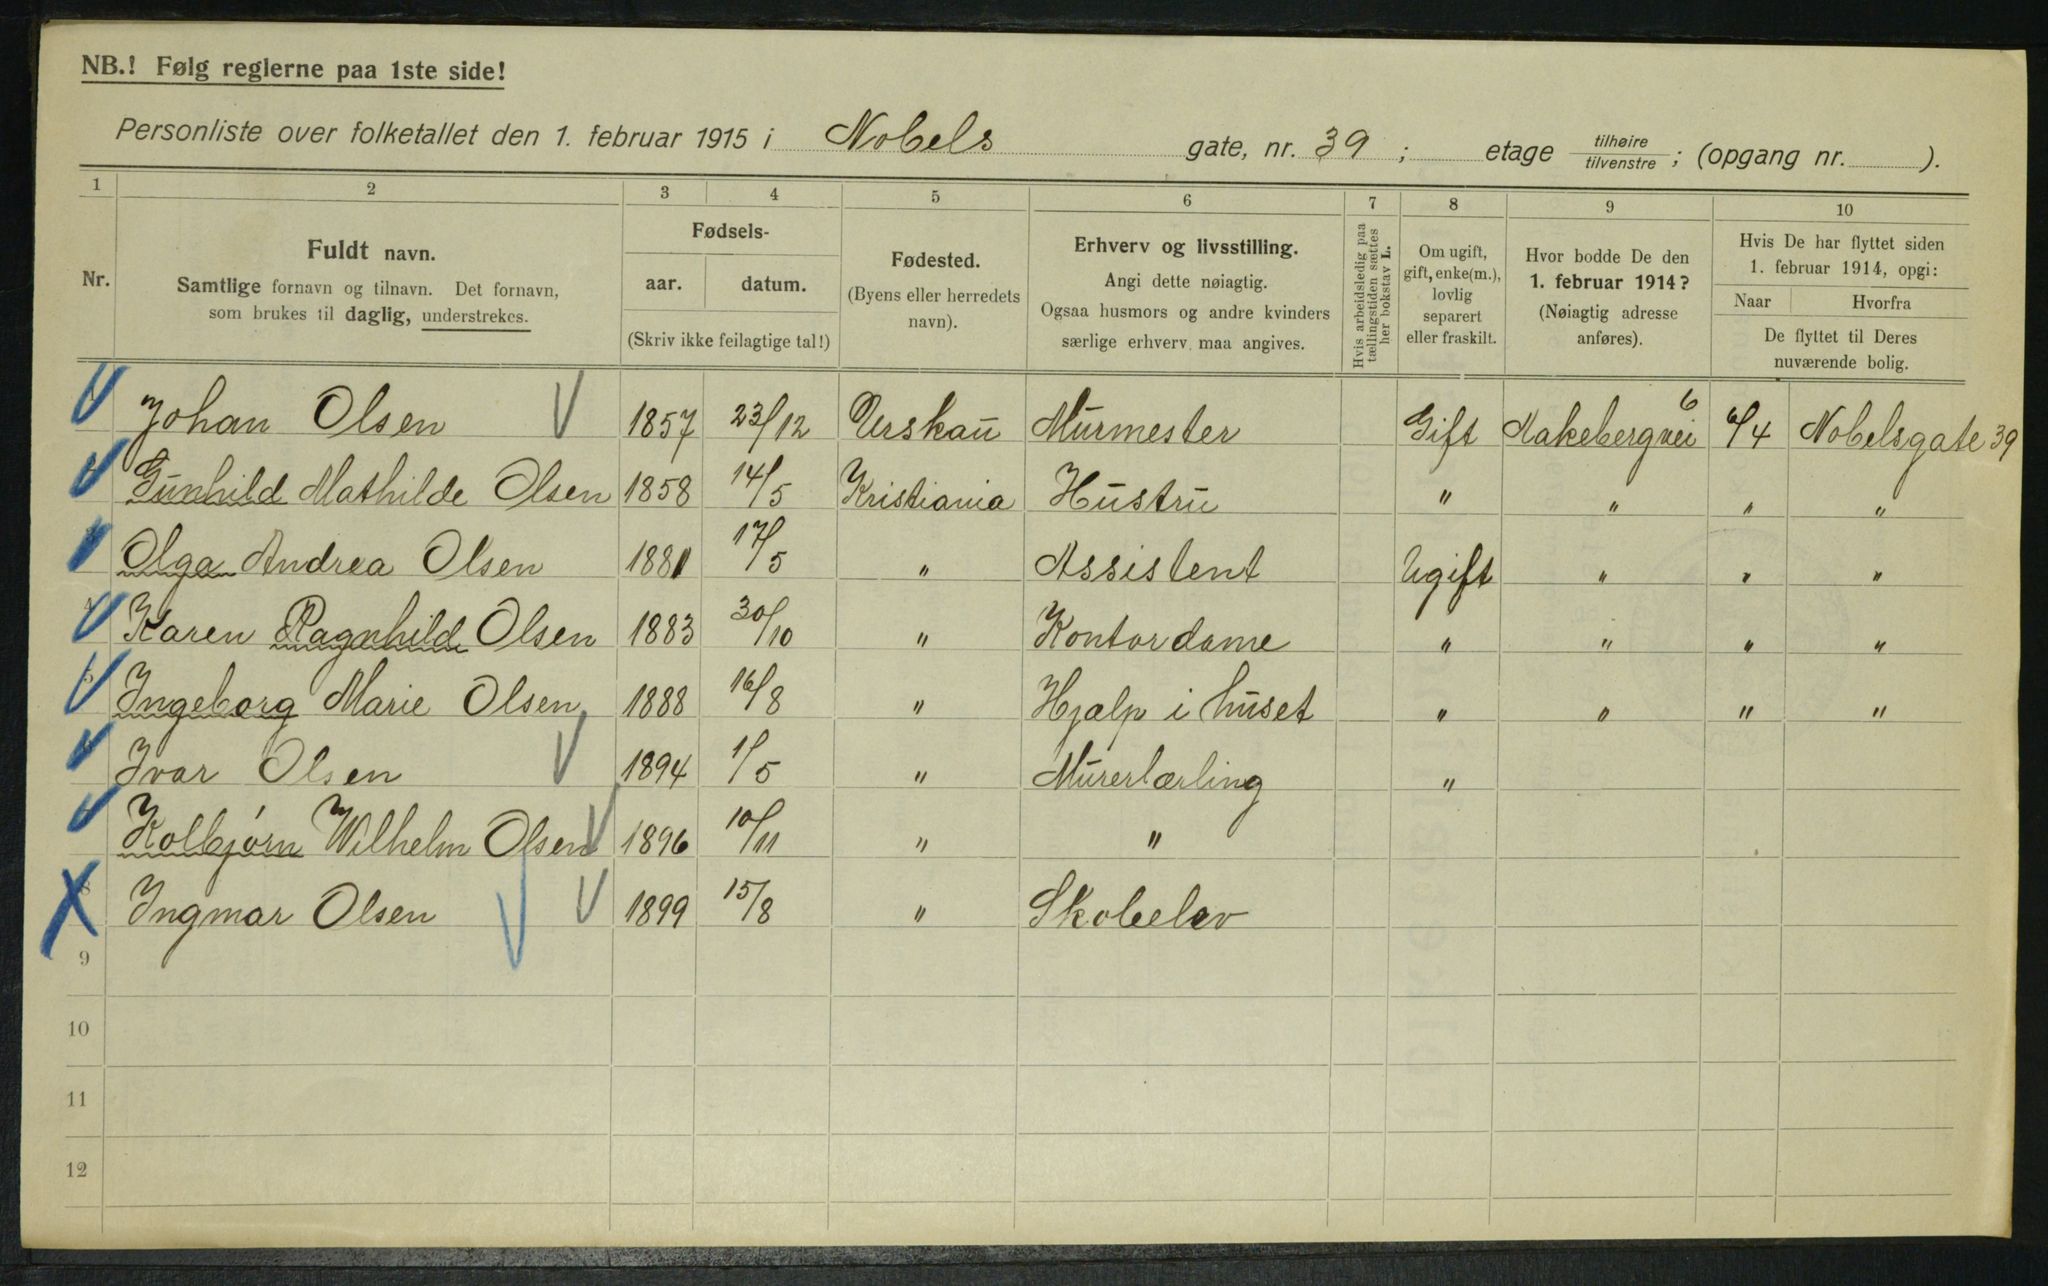 NB.! Følg reglerne paa 1ste side!
Personliste over folketallet den 1. februar 1915 i Nobels gate, nr. 39; etage tilhøire / tilvenstre; (opgang nr. ).
1 2 3 4 5 6 7 8 9 10
Nr.
Fuldt navn.
Samtlige fornavn og tilnavn. Det fornavn,
som brukes til daglig, understrekes.
Fødsels-
aar. datum.
(Skriv ikke feilagtige tal!)
Fødested.
(Byens eller herredets
navn).
Erhverv og livsstilling.
Angi dette nøiagtig.
Ogsaa husmors og andre kvinders
særlige erhverv maa angives.
Hvis arbeidsledig paa
tællingstiden sættes
her bokstav L.
Om ugift,
gift, enke(m.),
lovlig
separert
eller fraskilt.
Hvor bodde De den
1. februar 1914?
(Nøiagtig adresse
anføres).
Hvis De har flyttet siden
1. februar 1914, opgi:
Naar Hvorfra
De flyttet til Deres
nuværende bolig.
Johan Olsen 1857 23/12 Urskau Murmester Gift Aakebergvei 6 6/4 Nobelsgate 39
Gunhild Mathilde Olsen 1858 14/5 Kristiania Hustru " " " "
Olga Andrea Olsen 1881 17/5 " Assistent Ugift " " "
Karen Ragnhild Olsen 1883 30/10 " Kontordame " " " "
5 Ingeborg Marie Olsen 1888 16/8 " Hjælp i huset " " " "
Ivar Olsen 1894 1/5 " Murerlærling "
Kolbjørn Wilhelm Olsen 1896 10/11 " "
8 Ingmar Olsen 1899 15/8 " Skoleelev
9
10
11
12